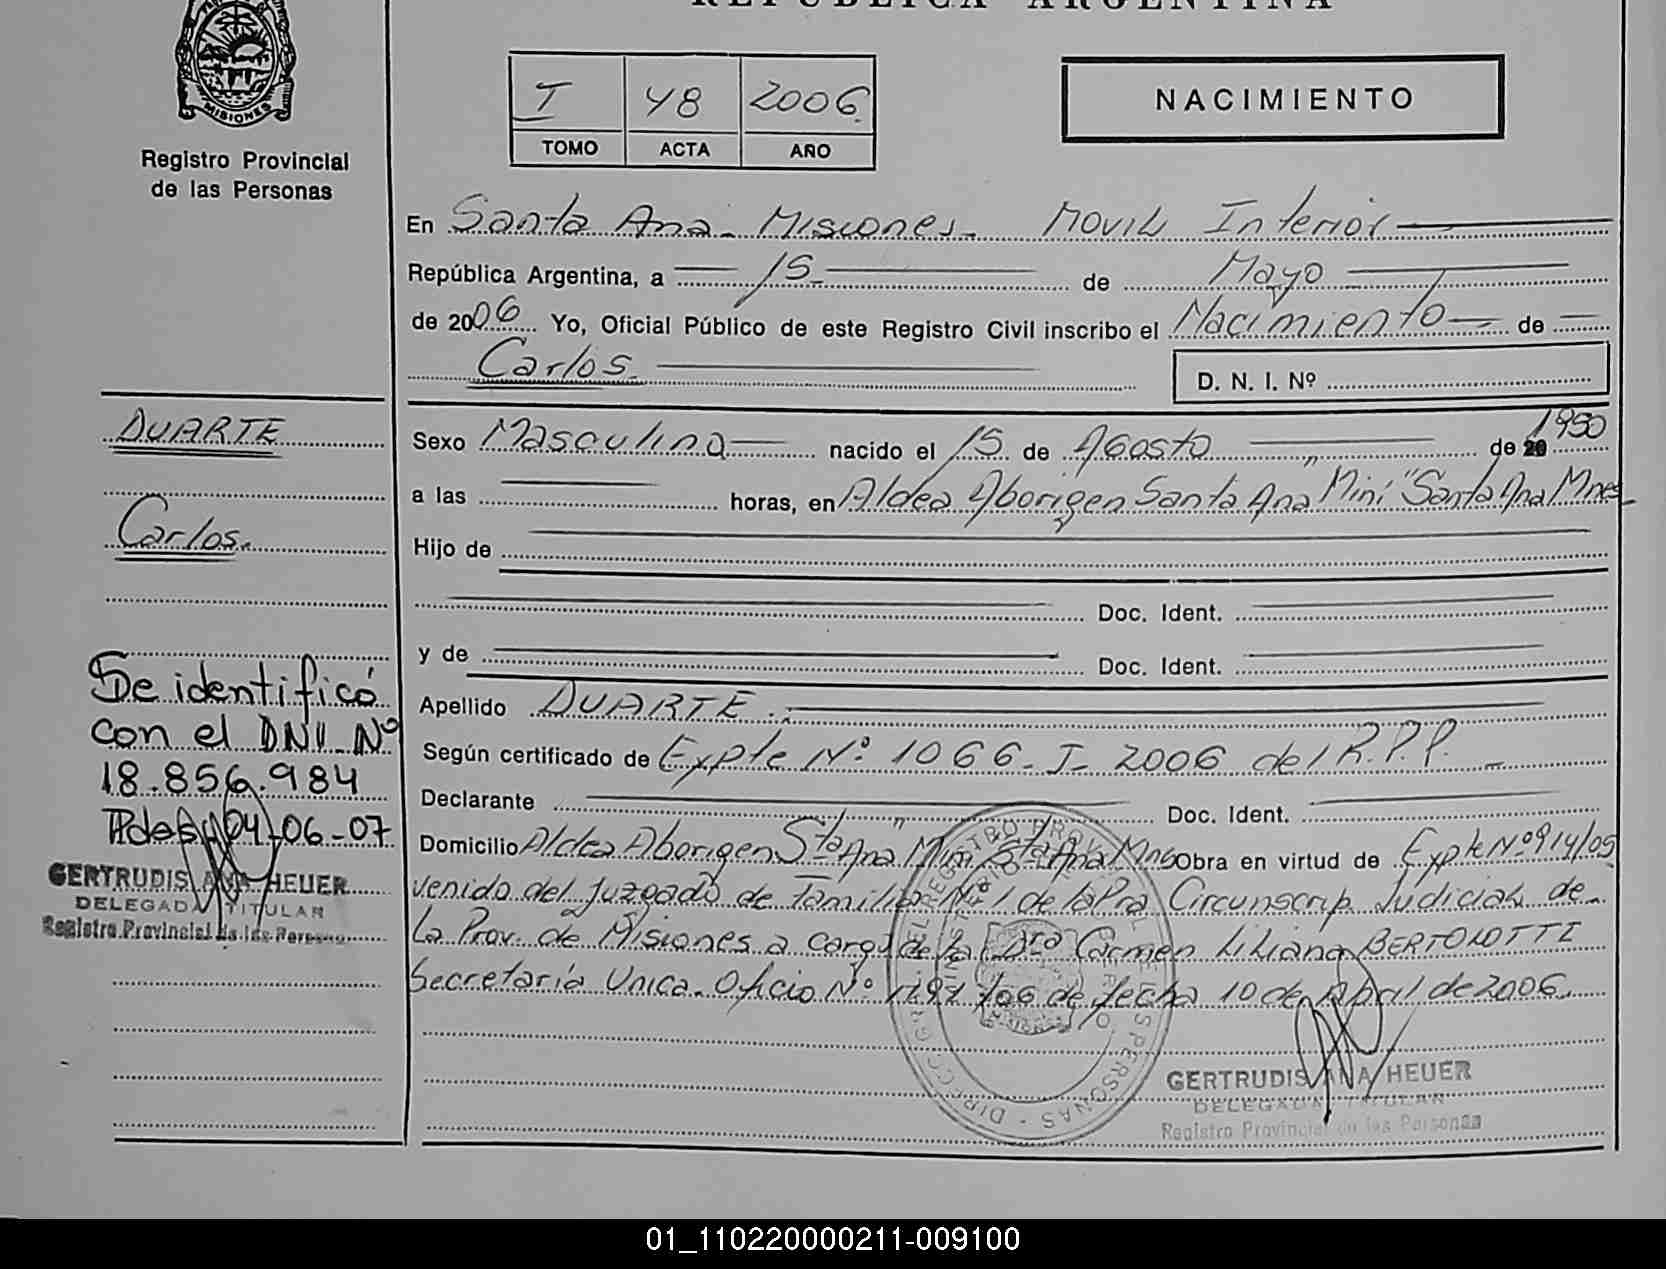 REPUBLICA ARGENTINA
MISIONES
Registro Provincial
de las Personas
I 48 2006
TOMO ACTA AÑO
NACIMIENTO
En Santa Ana - Misiones - Movil Interior
República Argentina, a 15 de Mayo
de 2006 Yo, Oficial Público de este Registro Civil inscribo el Nacimiento de
Carlos.
D. N. I. Nº
DUARTE
Carlos.
Sexo Masculino nacido el 15 de Agosto de 20 1950
a las horas, en Aldea Aborigen Santa Ana "Mini" Santa Ana Mnes
Hijo de
Doc. Ident.
y de
Doc. Ident.
Apellido DUARTE.
Según certificado de Expte Nº 1066-I-2006 del R.P.P.
Declarante Doc. Ident.
Domicilio Aldea Aborigen Sta Ana "Mini" Sta Ana Mnes Obra en virtud de Expte Nº 914/05
venido del Juzgado de familia Nº 1 de la Pra Circunscrip. Judicial de
La Prov. de Misiones a cargo de la Dra Carmen Liliana BERTOLOTTI
Secretaría Unica. Oficio Nº /06 de fecha 10 de Abril de 2006.
GERTRUDIS ANA HEUER
DELEGADA TITULAR
Registro Provincial de las Personas
Se identificó
con el DNI Nº
18.856.984
04-06-07
GERTRUDIS ANA HEUER
DELEGADA TITULAR
Registro Provincial de las Personas
01_110220000211-009100